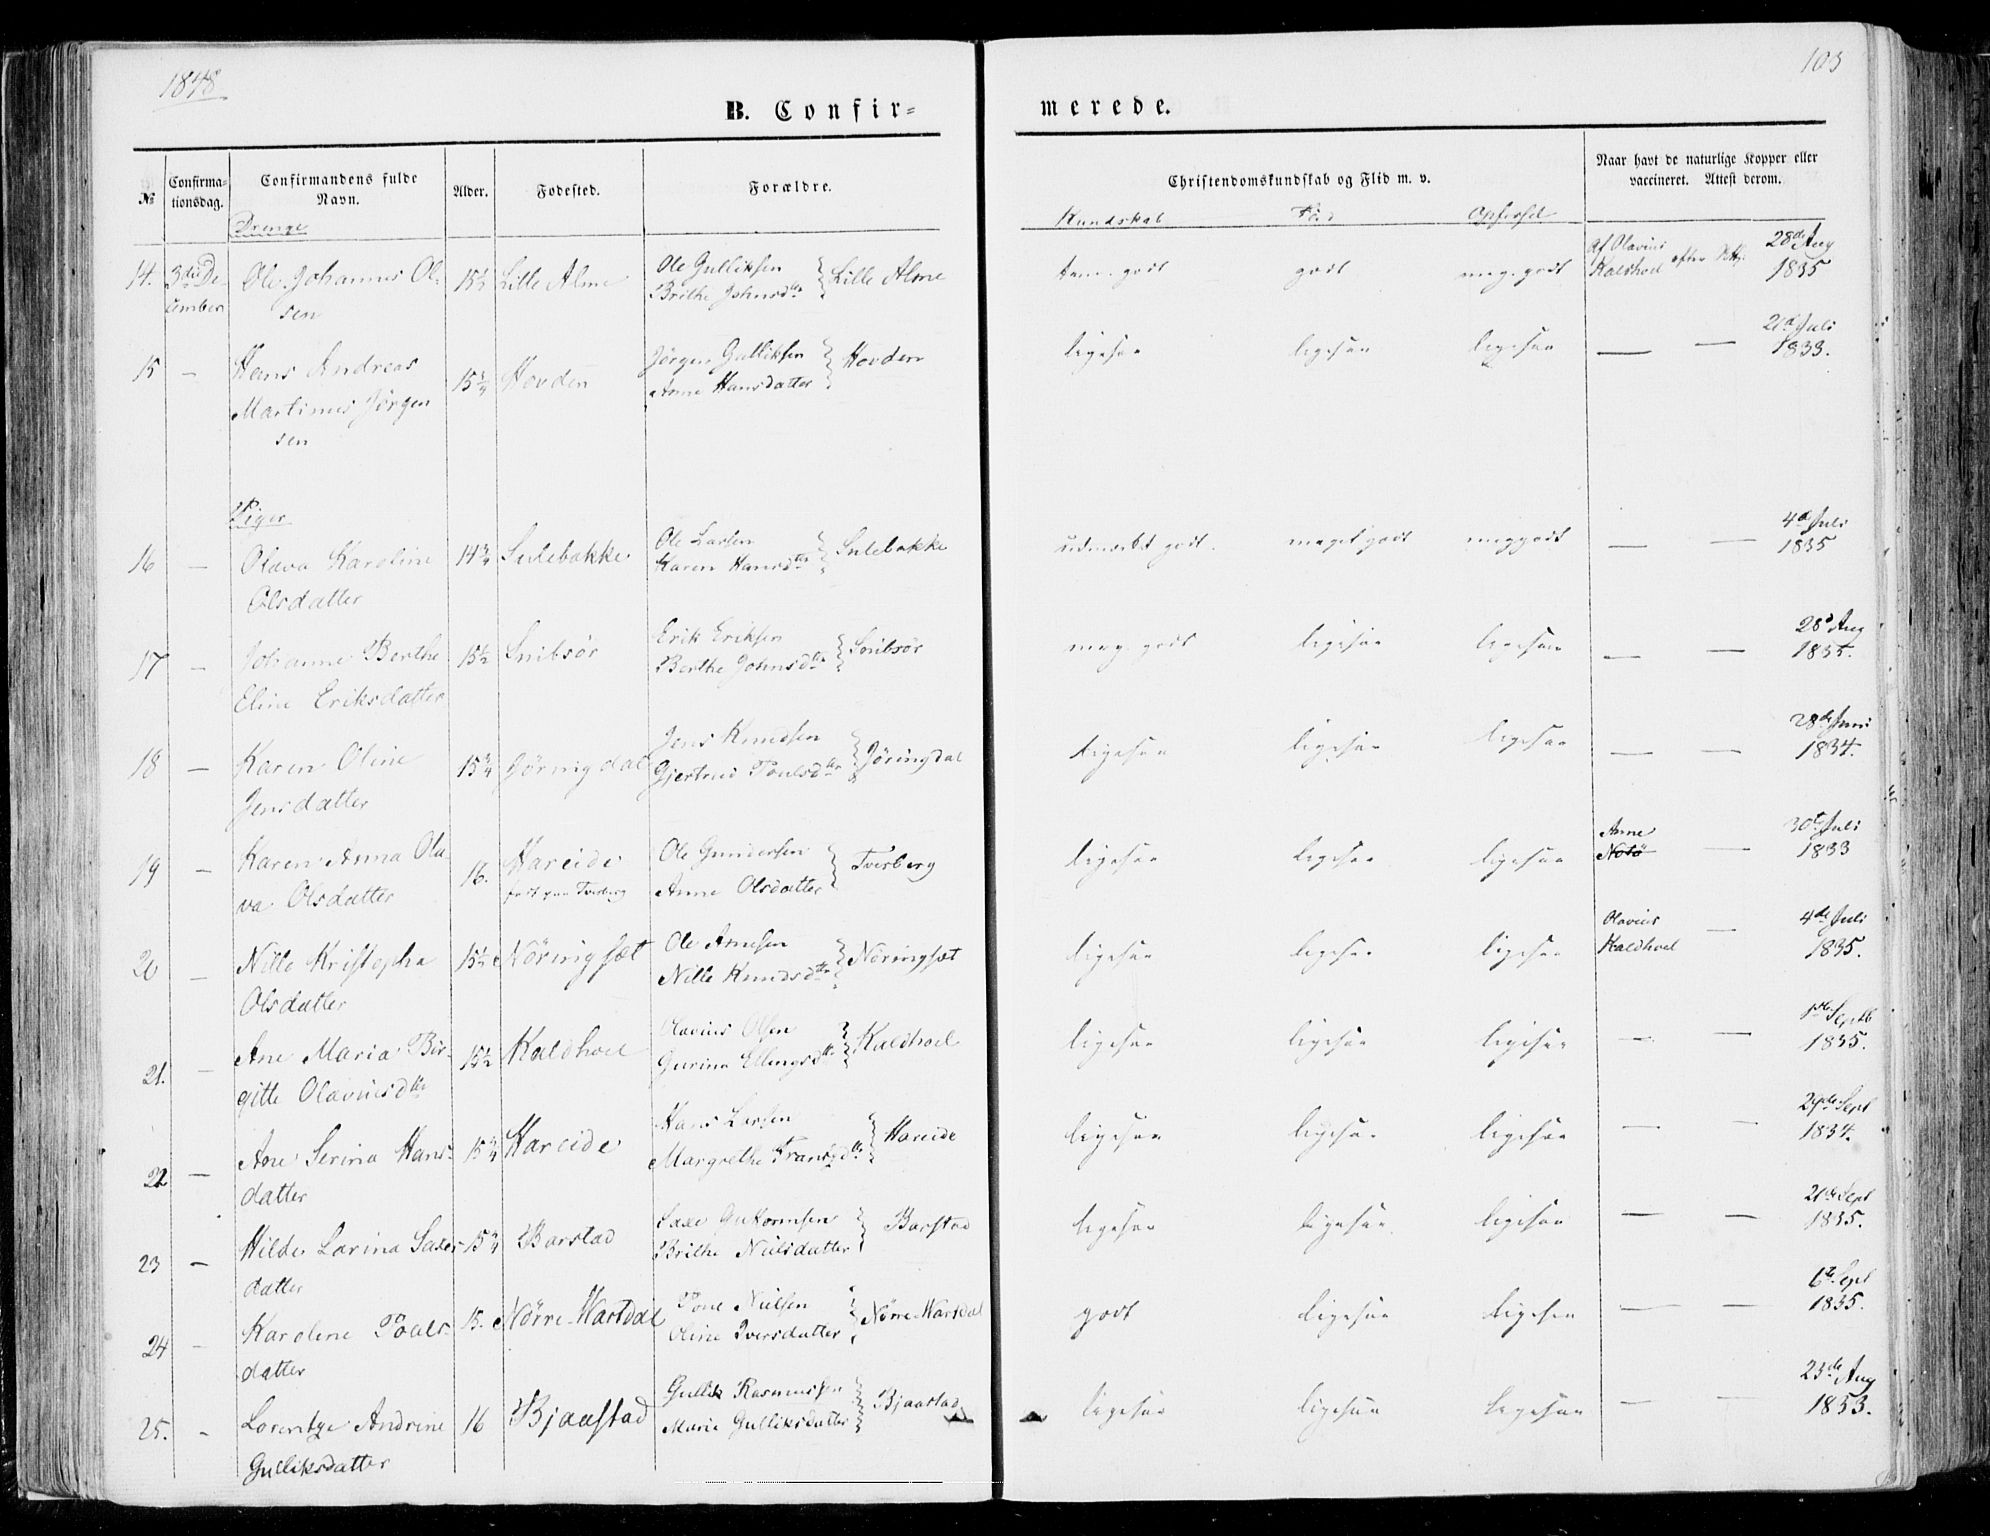 1848
103
B. Confir=
merede.
№
Confirma-
tionsdag.
Confirmandens fulde
Navn.
Alder.
Fodested.
Forældre.
Christendomskundskab og Flid m. v.
Naar havt de naturlige Kopper eller
vaccineret. Attest derom.
Drenge
Kundskab
Flid
Opførsel
14. 3die De- Ole Johannes Ol- 15½ Lille Alme Ole Gulliksen Lille Alme godt godt meg. godt Af Olavius 28de Aug
cember sen Brithe Johnsdtr Kaldhoel efter 1835
15 - Hans Andreas 15¾ Hovden Jørgen Gulliksen Hovden ligesaa ligesaa ligesaa — — Juli
Martinus Jørgen Anne Hansdatter 1833.
sen
Piger
16 - Olava Karoline 14¾ Sulebakke Ole Larsen Sulebakke udmærket godt. meget godt meg godt — — 4de Juli
Olsdatter Karen Hansdtr 1835
17 - Johanne Berthe 15½ Snibsör Erik Eriksen Snibsör meg. godt ligesaa ligesaa — — 28d Aug
Eline Eriksdatter Berthe Johnsdtr 1835.
18 - Karen Oline 15¾ Jøringdal Jens Knudsen Jøringdal ligesaa ligesaa ligesaa — — 28de Juni
Jensdatter Gjertrud Poulsdtr 1834.
19 - Karen Anna Ola- 16. Hareide Ole Gundersen Tverberg ligesaa ligesaa ligesaa Anne — 30te Juli
va Olsdatter født paa Tverberg Anne Olsdatter Notö 1833
20 - Nille Kristopha 15½ Nöringsæt Ole Arnesen Nöringsæt ligesaa ligesaa ligesaa Olavius — 4de Juli
Olsdatter Nille Knudsdtr Kaldhoel 1835.
21. - Ane Maria Bir- 15½ Kaldhoel Olavius Olsen Kaldhoel ligesaa ligesaa ligesaa — — 1ste Septb
gitte Olaviusdtr Gurina Ellingsdtr 1835.
22 - Ane Serina Hans- 15¾ Hareide Hans Larsen Hareide ligesaa ligesaa ligesaa — — Sept
datter Margrethe Fransdtr 1834.
23 - Hilde Larina Saxe- 15¾ Barstad Saxe Guttormsen Barstad ligesaa ligesaa ligesaa — — Sept
datter Brithe Nielsdatter 1835.
24 - Karoline Poals- 15. Nörre Wartdal Nielsen Nörre Warsdal godt ligesaa ligesaa — — 6te Sept
datter Oline Iversdatter 1835.
25. - Lorentze Andrine 16 Bjaastad Gullik Rasmussen Bjaastad ligesaa ligesaa ligesaa — — 23de Aug
Gulliksdatter Marie Gulliksdatter 1853.